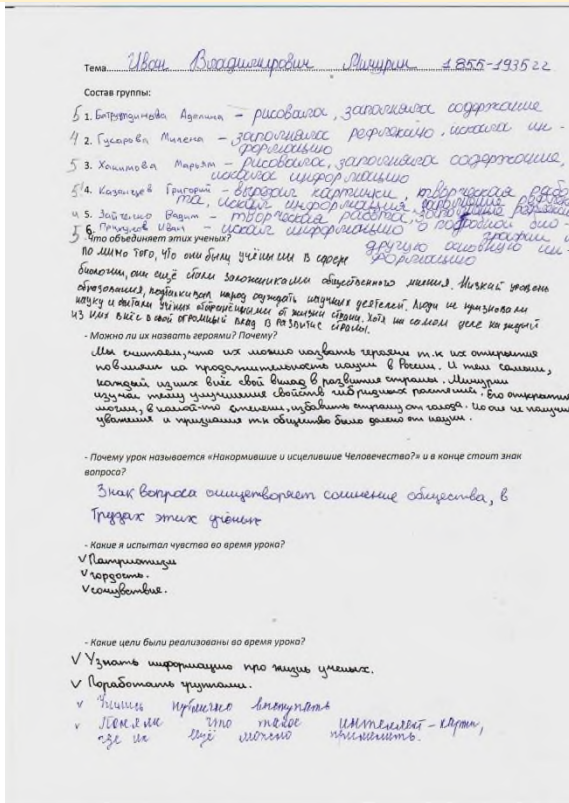 Тема Иван Владимирович Мичурин 1855-1935 гг
Состав группы:
5 1. Аделина – рисовала, заполняла содержание
4 2. Гусарова Милена – заполняла рефлексию, искала ин-
формацию
5 3. Хакимова Марьям – рисовала, заполняла содержание,
искала информацию
5 4. Казанцев Григорий – вырезал картинки, творческая рабо-
та, искал информация, заполнение рефлексии
4 5. Зайченко Вадим – творческая работа, заполнение рефлексии
5 6. Иван – искал информацию о подробной био-
графии и
- Что объединяет этих ученых?
другую основную ин-
формацию
По мимо того, что они были учёными в сфере
биологии, они ещё стали заложниками общественного мнения. Низкий уровень
образования, подталкивал народ осуждать научных деятелей. Люди не признавали
науку и считали учёных отрешёнными от жизни страны. Хотя на самом деле каждый
из них внёс в свой огромный вклад в развитие страны.
- Можно ли их назвать героями? Почему?
Мы считаем, что их можно назвать героями т.к их открытия
повлияли на продолжительность нации в России. И тем самым,
каждый из них внёс свой вклад в развитие страны. Мичурин
изучал тему улучшения свойств гибридных растений. Его открытия
могли, в какой-то степени, избавить страну от голода. Но он не получил
уважения и признания т.к общество было далеко от науки.
- Почему урок называется «Накормившие и исцелившие Человечество?» и в конце стоит знак
вопроса?
Знак вопроса олицетворяет сомнение общества, в
трудах этих учёных
- Какие я испытал чувства во время урока?
√ Патриотизм
√ гордость.
√ сочувствие.
- Какие цели были реализованы во время урока?
√ Узнать информацию про жизнь ученых.
√ Поработать группами.
√ Учились публично выступать
√ Поняли что такое интеллект-карты,
где их ещё можно применить.